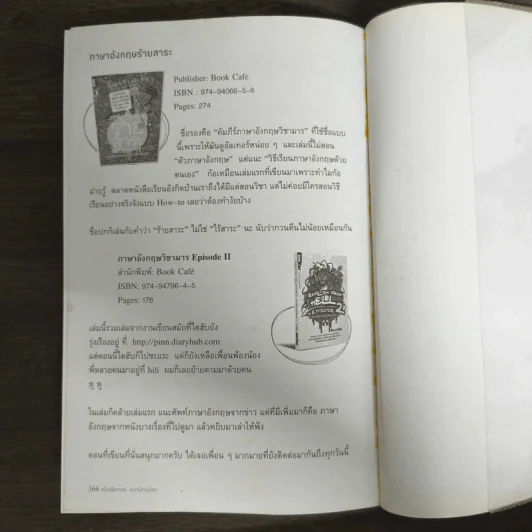 ภาษาอังกฤษร้ายสาระ
Publisher: Book Cafe
ISBN : 974-94066-5-6
Pages: 274
ชื่อรองคือ "คัมภีร์ภาษาอังกฤษวิชามาร" ที่ใช้ชื่อแบบ
นี้เพราะให้มันดูอัลเทอร์หน่อย ๆ และเล่มนี้ไม่สอน
"ตัวภาษาอังกฤษ" แต่แนะ "วิธีเรียนภาษาอังกฤษด้วย
ตนเอง" ก็เหมือนเล่มแรกที่เขียนมาเพราะทำไมก้อ
ม่ายรู้ ตลาดหนังสือเรียนอังกิดบ้านเราถึงได้มีแต่สอนวิชา แต่ไม่ค่อยมีใครสอนวิธี
เรียนอย่างจริงจังแบบ How-to เลยว่าต้องทำยังบ้าง
ชื่อปกก็เล่นกับคำว่า "ร้ายสาระ" ไม่ใช่ "ไร้สาระ" นะ นับว่ากวนตีนไม่น้อยเหมือนกัน
ภาษาอังกฤษวิชามาร Episode II
สำนักพิมพ์: Book Café
ISBN: 974-94796-4-5
Pages: 176
ENGLISH FROM
HELL
EPISODE
2
เล่มนี้รวมเล่มจากงานเขียนสมัยที่ไดฮับยัง
รุ่งเรืองอยู่ ที่ http://pinn.diaryhub.com
แต่ตอนนี้ไดฮับก็ไปซะแระ แต่ก็ยังเหลือเพื่อนพ้องน้อง
พี่หลายคนมาอยู่ที่ hi5 ผมก็เลยย้ายตามมาด้วยคน
ๆ ๆ
ในเล่มก็คล้ายเล่มแรก แนะศัพท์ภาษาอังกฤษจากข่าว แต่ที่มีเพิ่มมาก็คือ ภาษา
อังกฤษจากหนังบางเรื่องที่ไปดูมา แล้วหยิบมาเล่าให้ฟัง
ตอนที่เขียนที่นั่นสนุกมากครับ ได้เจอเพื่อน ๆ มากมายที่ยังติดต่อมากันถึงทุกวันนี้
366